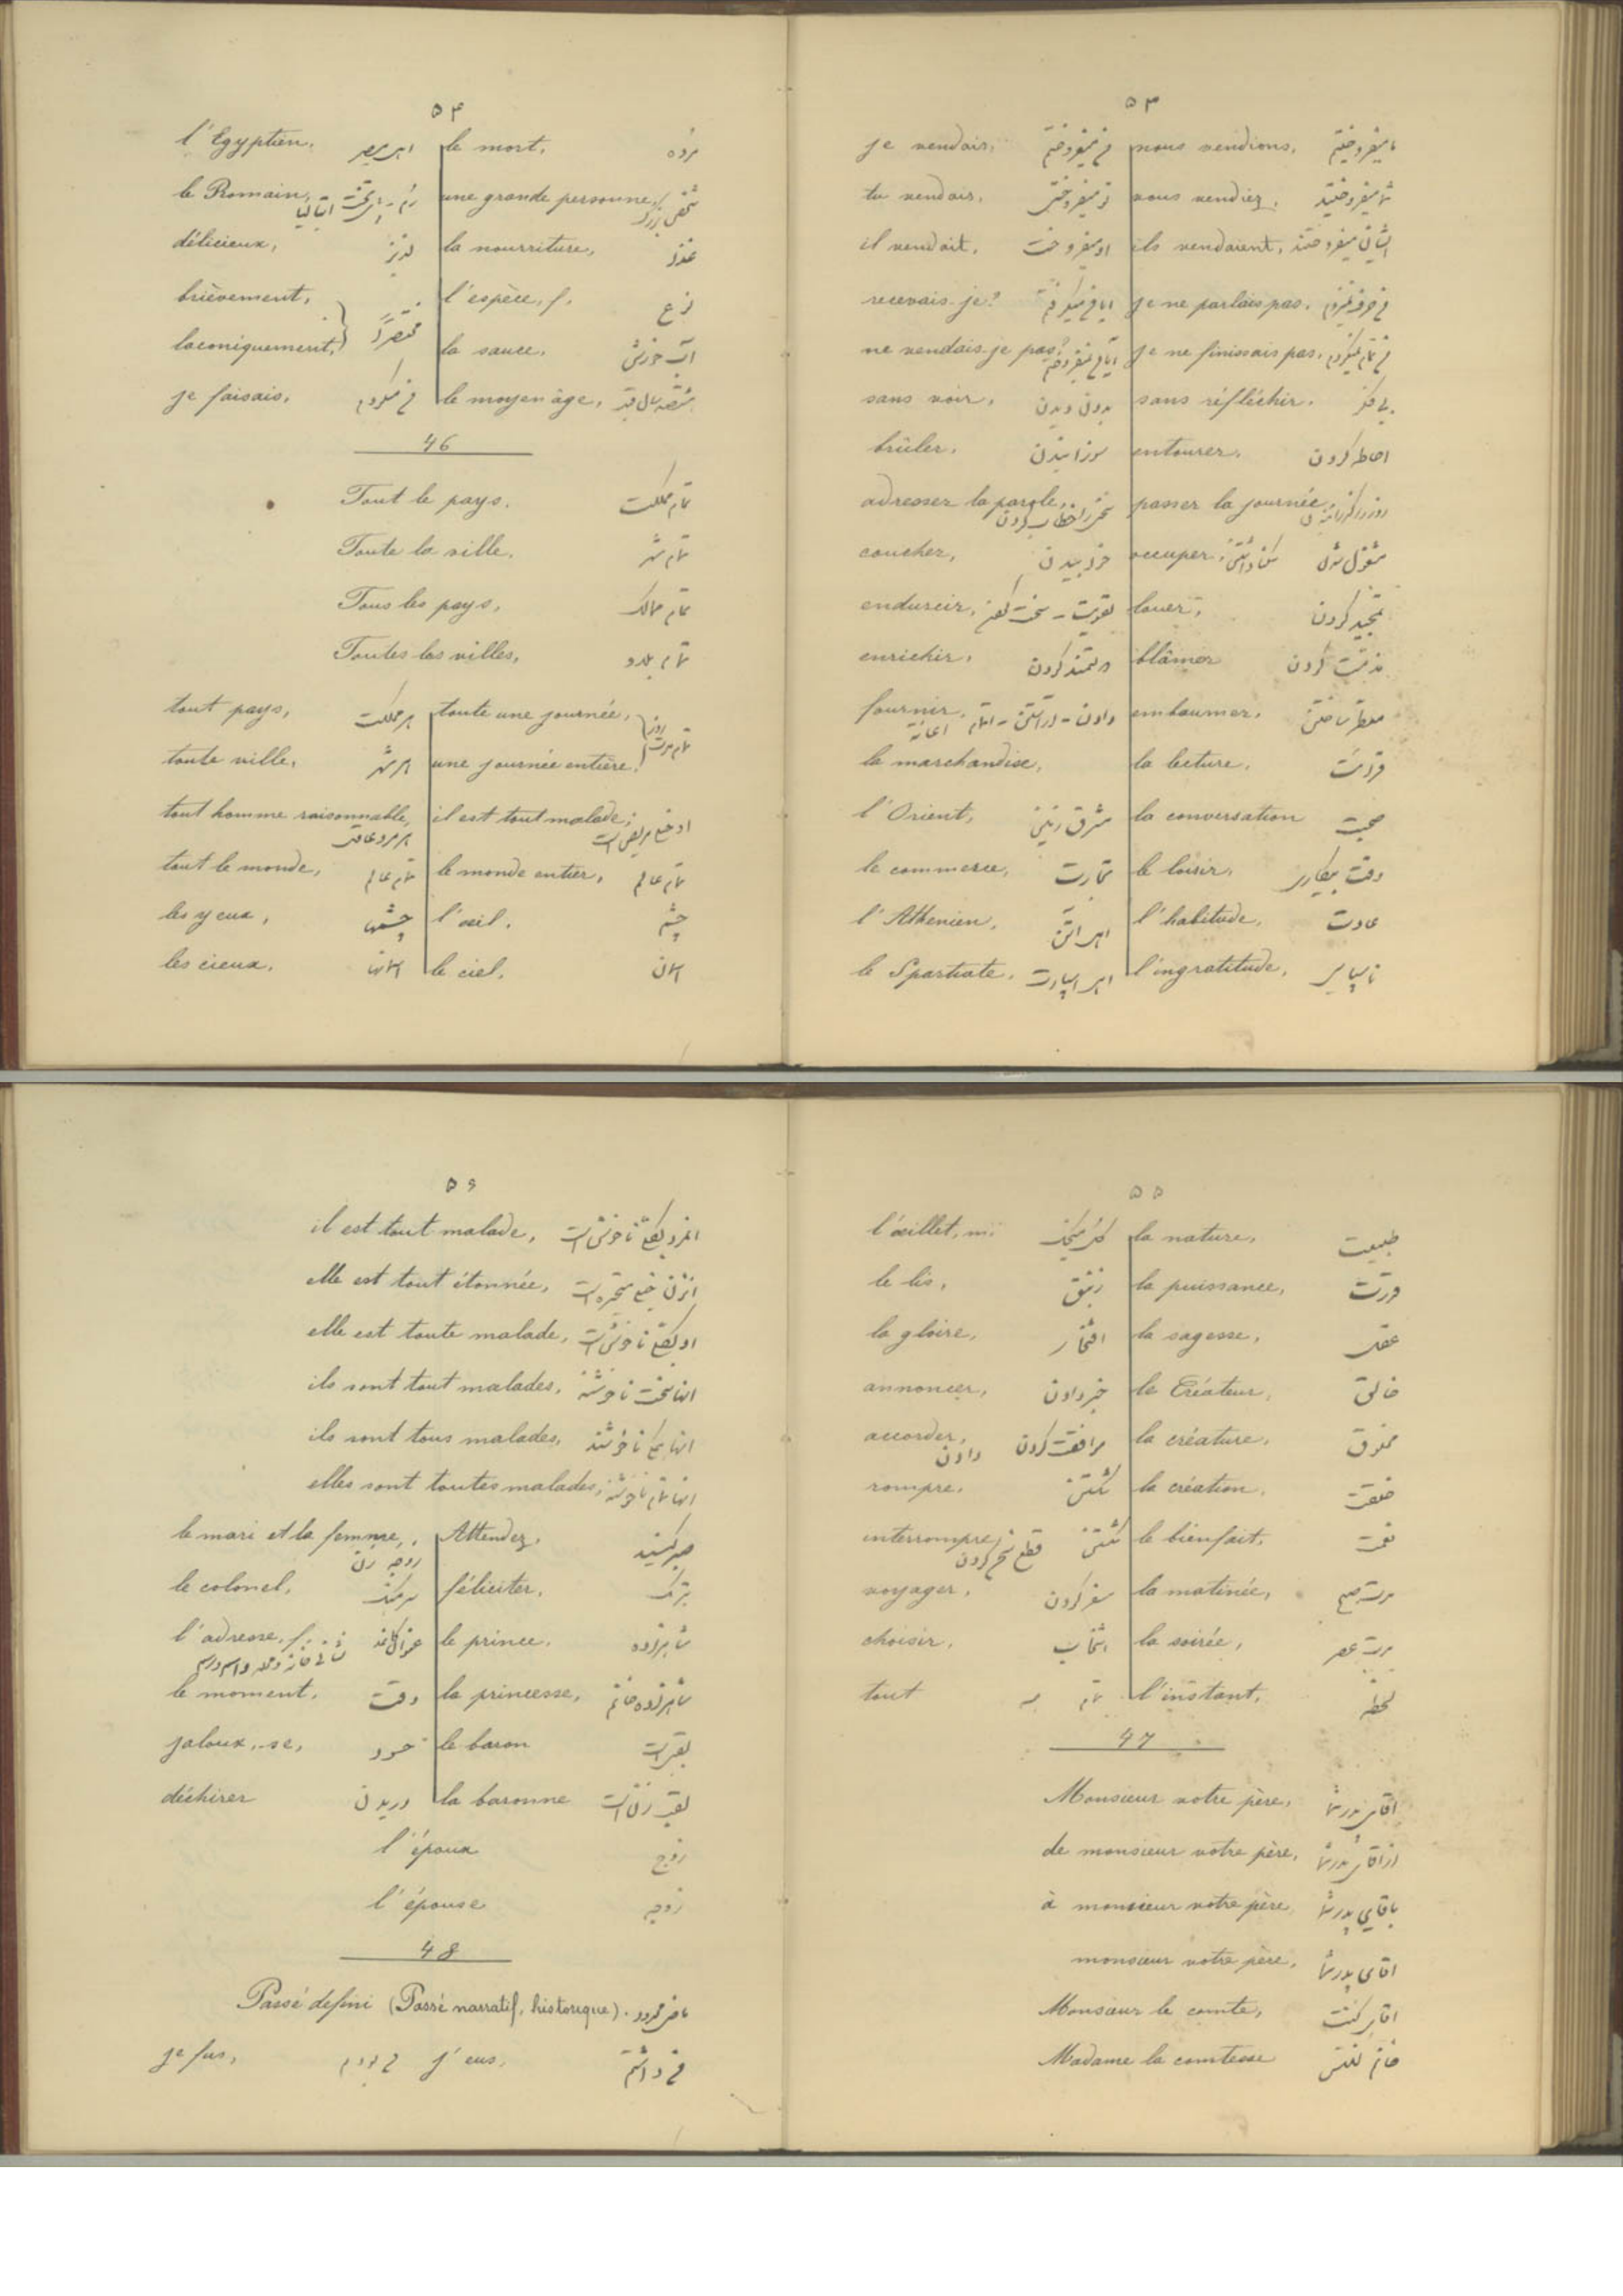 ۵۳
je vendais. من میفروختم nous vendions. ما میفروختیم
tu vendais. تو میفروختی vous vendiez. شما میفروختید
il vendait. او میفروخت ils vendaient. ایشان میفروختند
recevais-je? je ne parlais pas.
ne vendais-je pas? je ne finissais pas.
sans voir. بدون دیدن sans réfléchir. بی فکر
brûler. سوزانیدن entourer. احاطه کردن
adresser la parole. passer la journée.
coucher. خوابیدن occuper. مشغول شدن
endurcir. louer. تمجید کردن
enrichir. دولتمند کردن blâmer مذمت کردن
fournir. embaumer. معطر ساختن
la marchandise. la lecture. قرائت
l'Orient. مشرق زمین la conversation صحبت
le commerce. تجارت le loisir. وقت بیکاری
l'Athenien. اهل اتن l'habitude. عادت
le Spartiate. اهل اسپارت l'ingratitude. ناسپاسی
۵۴
l'Egyptien. اهل مصر le mort. مرده
le Romain. une grande personne. شخص بزرگ
délicieux. لذیذ la nourriture. غذا
brièvement. l'espèce, f. نوع
laconiquement. مختصراً la sauce. آب خورش
je faisais. من میکردم le moyen âge.
46
Tout le pays. تمام مملکت
Toute la ville. تمام شهر
Tous les pays. تمام ممالک
Toutes les villes. تمام بلاد
tout pays. هر مملکت toute une journée.
toute ville. هر شهر une journée entière. تمام مدت روز
tout homme raisonnable. هر مرد عاقل il est tout malade.
tout le monde. تمام عالم le monde entier. تمام عالم
les yeux. چشمها l'œil. چشم
les cieux. آسمانها le ciel. آسمان
۵۵
l'œillet, m. گل میخک la nature. طبیعت
le lis. زنبق la puissance. قدرت
la gloire. افتخار la sagesse. عقل
annoncer. خبر دادن le Créateur. خالق
accorder. موافقت کردن دادن la créature. مخلوق
rompre. شکستن la création. خلقت
interrompre شکستن قطع سخن کردن le bienfait. نعمت
voyager. سفر کردن la matinée. مدت صبح
choisir. انتخاب la soirée. مدت عصر
tout تمام همه l'instant. لحظه
47
Monsieur votre père. اقای پدر شما
de monsieur votre père. از اقای پدر شما
à monsieur votre père. باقای پدر شما
monsieur votre père. اقای پدر شما
Monsieur le comte. اقای کنت
Madame la comtesse خانم کنتس
۵۶
il est tout malade.
elle est tout étonnée.
elle est toute malade.
ils sont tout malades. انها سخت ناخوشند
ils sont tous malades.
elles sont toutes malades. انها تمام ناخوشند
le mari et la femme. زوجه زن Attendez. صبر کنید
le colonel. سرهنگ féliciter. تبریک
l'adresse, f. عنوان کاغذ le prince. شاهزاده
le moment. وقت la princesse. شاهزاده خانم
jaloux, se. حسود le baron لقب است
déchirer دریدن la baronne لقب زن است
l'époux زوج
l'épouse زوجه
48
Passé defini (Passé narratif, historique). ماضی محدود
je fus. من بودم j'eus. من داشتم